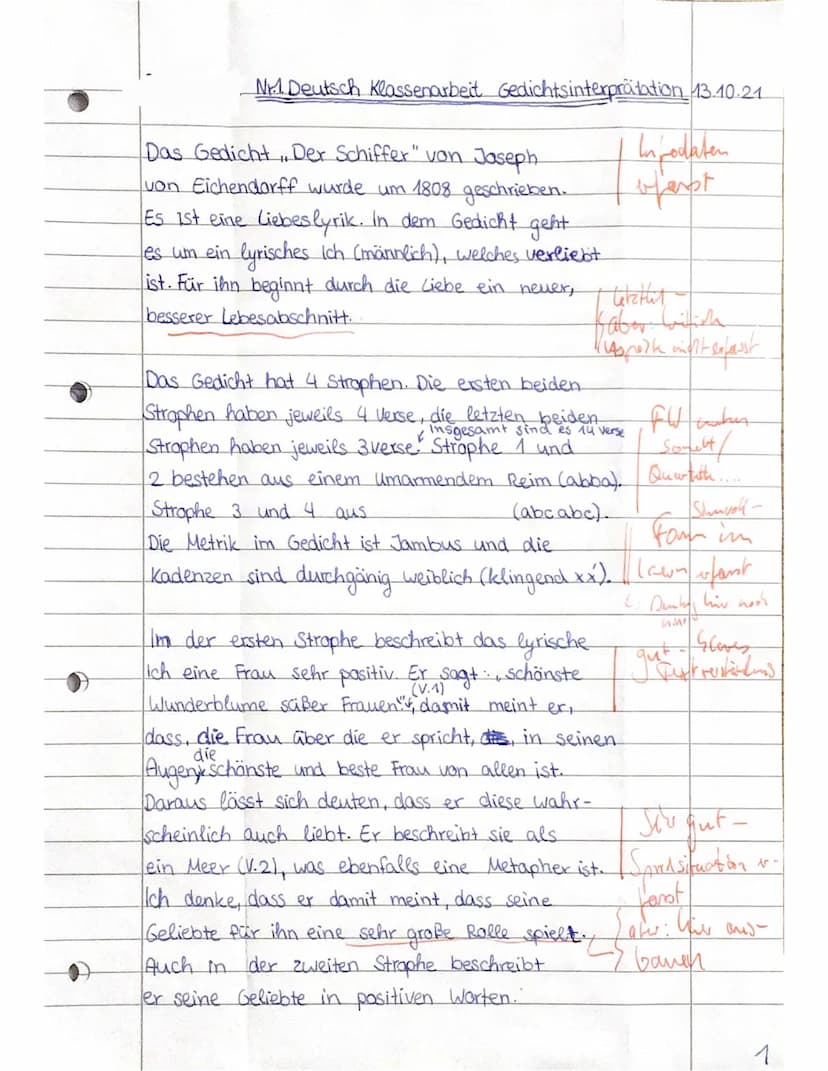 Nr.1 Deutsch Klassenarbeit Gedichtsinterprätation 13.10.21
Das Gedicht „Der Schiffer" von Joseph
von Eichendorff wurde um 1808 geschrieben.
Infodaten
erfasst
Es ist eine Liebeslyrik. In dem Gedicht geht
es um ein lyrisches Ich (männlich), welches verliebt
ist. Für ihn beginnt durch die Liebe ein neuer,
besserer Lebesabschnitt.
letztlich -
aber:
Aspekte nicht erfasst
Das Gedicht hat 4 Strophen. Die ersten beiden
Strophen haben jeweils 4 Verse, die letzten beiden
insgesamt sind es 14 verse
Strophen haben jeweils 3 verse. Strophe 1 und
2 bestehen aus einem Umarmendem Reim (abba).
Strophe 3 und 4 aus (abcabc).
Die Metrik im Gedicht ist Jambus und die
Kadenzen sind durchgänig weiblich (klingend xx́).
FW
Sonett /
Quartett....
Form im
erfasst
hier noch
Im der ersten Strophe beschreibt das lyrische
Ich eine Frau sehr positiv. Er sagt: „schönste
(V.1)
Wunderblume süßer Frauen", damit meint er,
gut -
Textverständnis
dass, die Frau über die er spricht, in seinen
die
Augen schönste und beste Frau von allen ist.
Daraus lässt sich deuten, dass er diese wahr-
scheinlich auch liebt. Er beschreibt sie als
ein Meer (V.2), was ebenfalls eine Metapher ist.
Ich denke, dass er damit meint, dass seine
Geliebte für ihn eine sehr große Rolle spielt.
Sehr gut -
Sprechsituation er-
fasst
aber: hier aus-
bauen
Auch in der zweiten Strophe beschreibt
er seine Geliebte in positiven Worten.
1